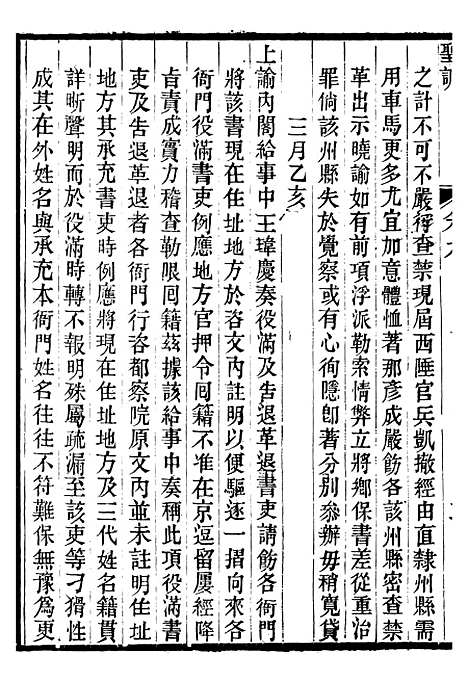 聖訓
之計不可不嚴行查禁現屆西陲官兵凱撤經由直隸州縣需
用車馬更多尤宜加意體恤著那彥成嚴飭各該州縣密查禁
革出示曉諭如有前項浮派勒索情弊立將鄉保書差從重治
罪倘該州縣失於覺察或有心徇隱卽著分別參辦毋稍寬貸
三月乙亥
上諭內閣給事中王瑋慶奏役滿及告退革退書吏請飭各衙門
將該書現在住址地方於咨文內註明以便驅逐一摺向來各
衙門役滿書吏例應地方官押令囘籍不准在京逗留屢經降
旨責成實力稽查勒限囘籍茲據該給事中奏稱此項役滿書
吏及告退革退者各衙門行咨都察院原文內並未註明住址
地方其承充書吏時例應將現在住址地方及三代姓名籍貫
詳晰聲明而於役滿時轉不報明殊屬疏漏至該吏等刁猾性
成其在外姓名與承充本衙門姓名往往不符難保無豫爲更